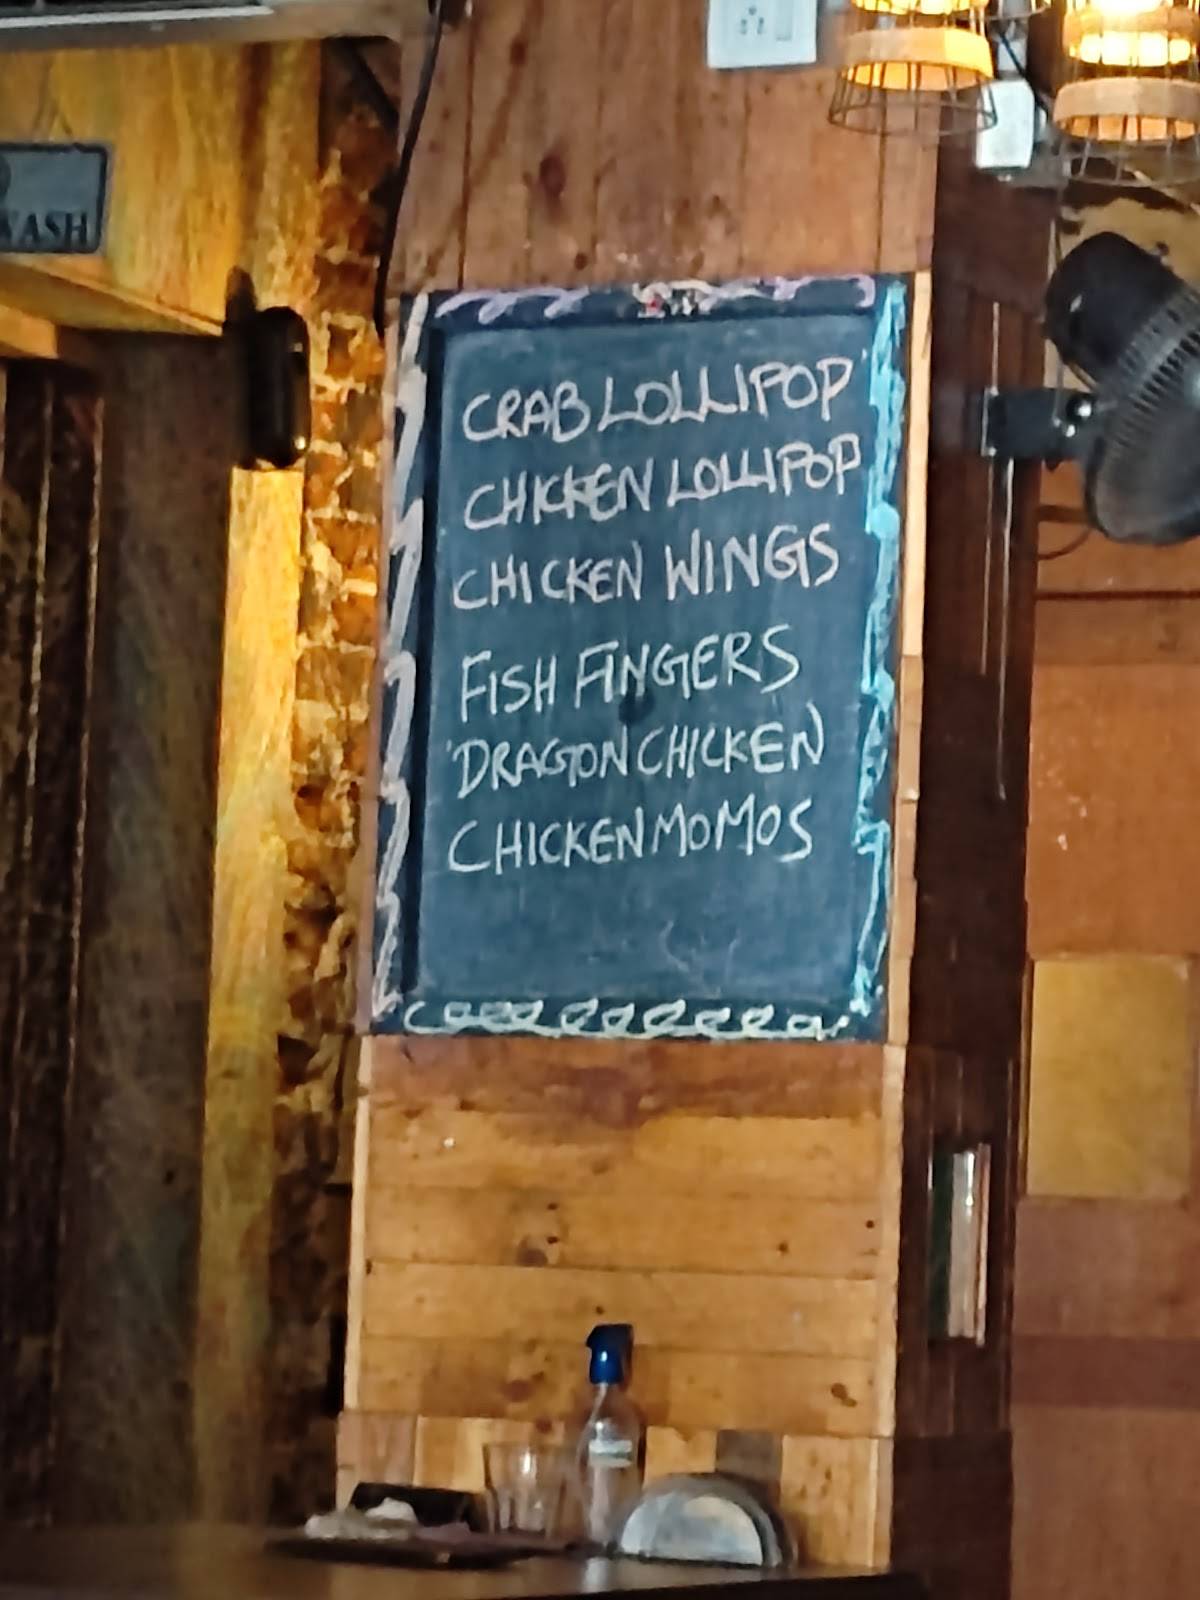 WASH
CRAB LOLLIPOP
CHICKEN LOLLIPOP
CHICKEN WINGS
FISH FINGERS
DRAGON CHICKEN
CHICKEN MOMOS